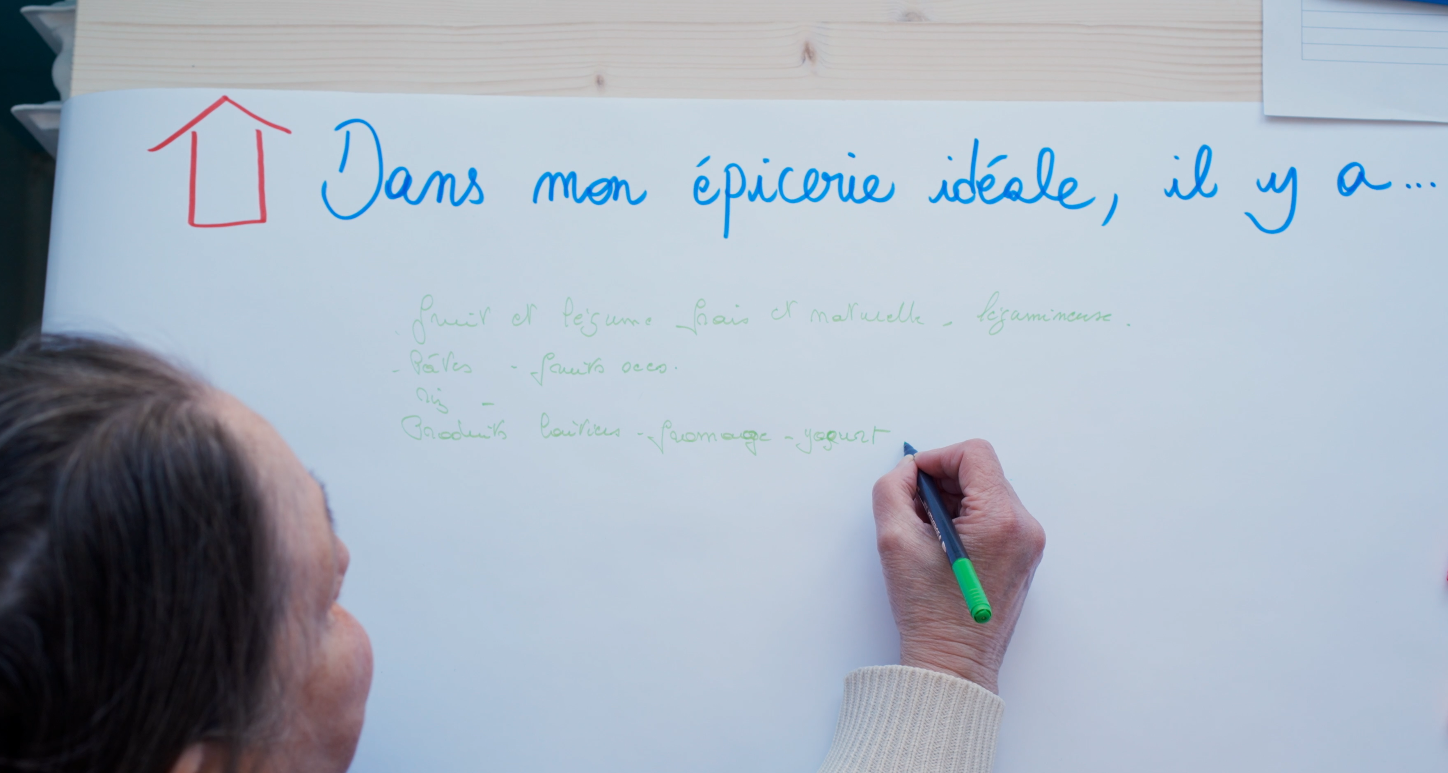 Dans mon épicerie idéale, il y a...
fruit et légume frais et naturelle - légumineuse.
- Pâtes - fruits secs.
riz -
Produits laitiers - fromage - yogurt